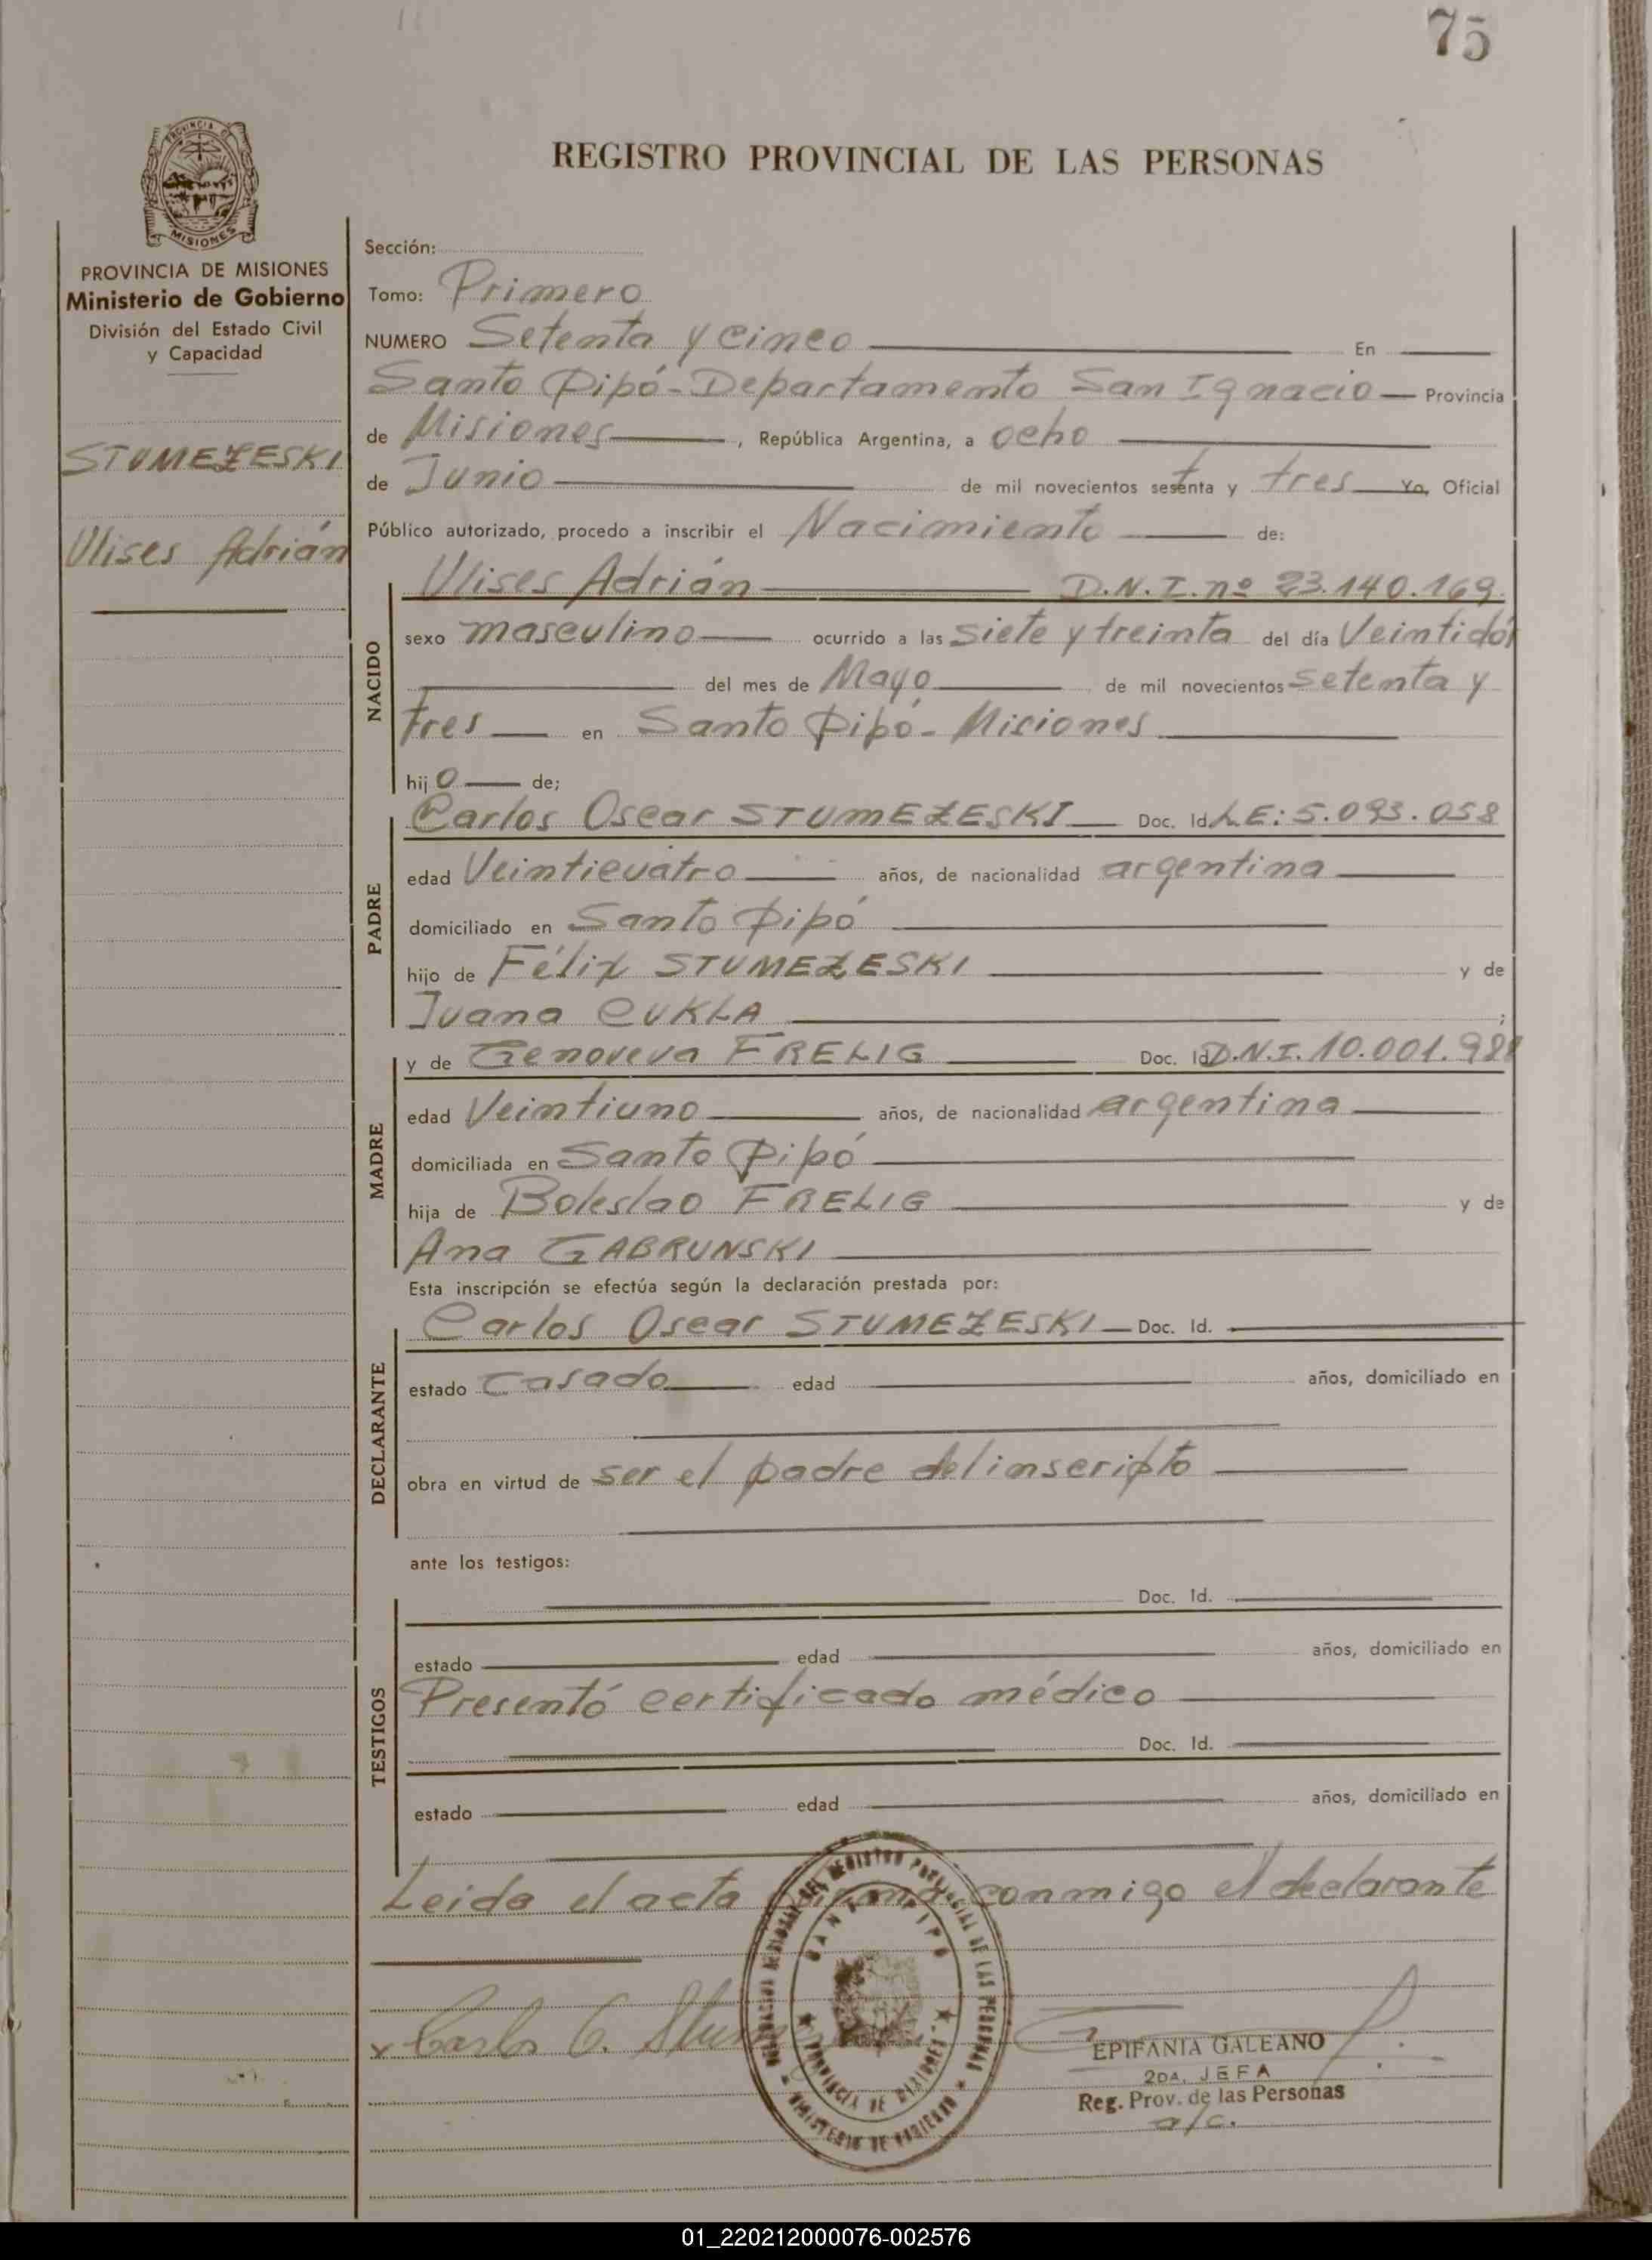 75
REGISTRO PROVINCIAL DE LAS PERSONAS
PROVINCIA DE MISIONES
PROVINCIA DE MISIONES
Ministerio de Gobierno
División del Estado Civil
y Capacidad
STUMEZESKI
Ulises Adrián
Sección:
Tomo: Primero
NUMERO Setenta y Cinco En
Santo Pipó - Departamento San Ignacio Provincia
de Misiones, República Argentina, a ocho
de Junio de mil novecientos setenta y tres Yo, Oficial
Público autorizado, procedo a inscribir el Nacimiento de:
NACIDO
Ulises Adrián D.N.I. nº 23.140.169
sexo masculino ocurrido a las siete y treinta del día Veintidós
del mes de Mayo de mil novecientos setenta y
tres en Santo Pipó - Misiones
hijo de;
PADRE
Carlos Oscar STUMEZESKI Doc. Id. L.E: 5.093.058
edad Veinticuatro años, de nacionalidad argentina
domiciliado en Santo Pipó
hijo de Félix STUMEZESKI y de
Juana CUKLA ;
MADRE
y de Genoveva FRELIG Doc. Id. D.N.I. 10.001.98
edad Veintiuno años, de nacionalidad argentina
domiciliada en Santo Pipó
hija de Boleslao FRELIG y de
Ana GABRUNSKI
Esta inscripción se efectúa según la declaración prestada por:
DECLARANTE
Carlos Oscar STUMEZESKI Doc. Id.
estado Casado edad años, domiciliado en
obra en virtud de ser el padre del inscripto
ante los testigos:
TESTIGOS
Doc. Id.
estado edad años, domiciliado en
Presentó certificado médico
Doc. Id.
estado edad años, domiciliado en
Leida el acta firma conmigo el declarante
x Carlos O.
DEL REGISTRO PROVINCIAL DE LAS PERSONAS
SANTO PIPO
PROVINCIA DE MISIONES
MINISTERIO DE GOBIERNO
EPIFANIA GALEANO
2DA. JEFA
Reg. Prov. de las Personas
a/c.
01_220212000076-002576